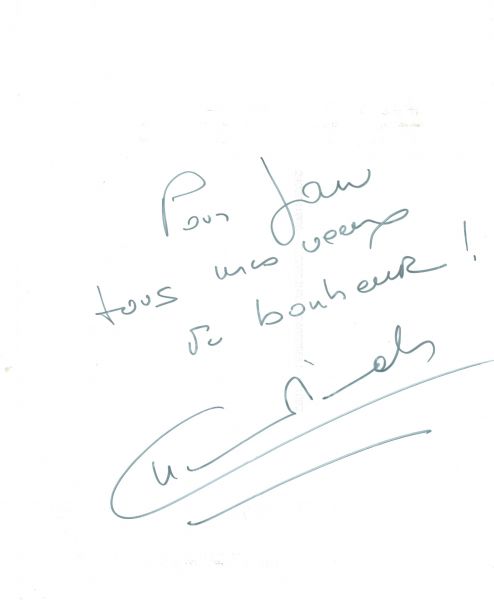 Pour Jan
tous mes vœux
de bonheur !